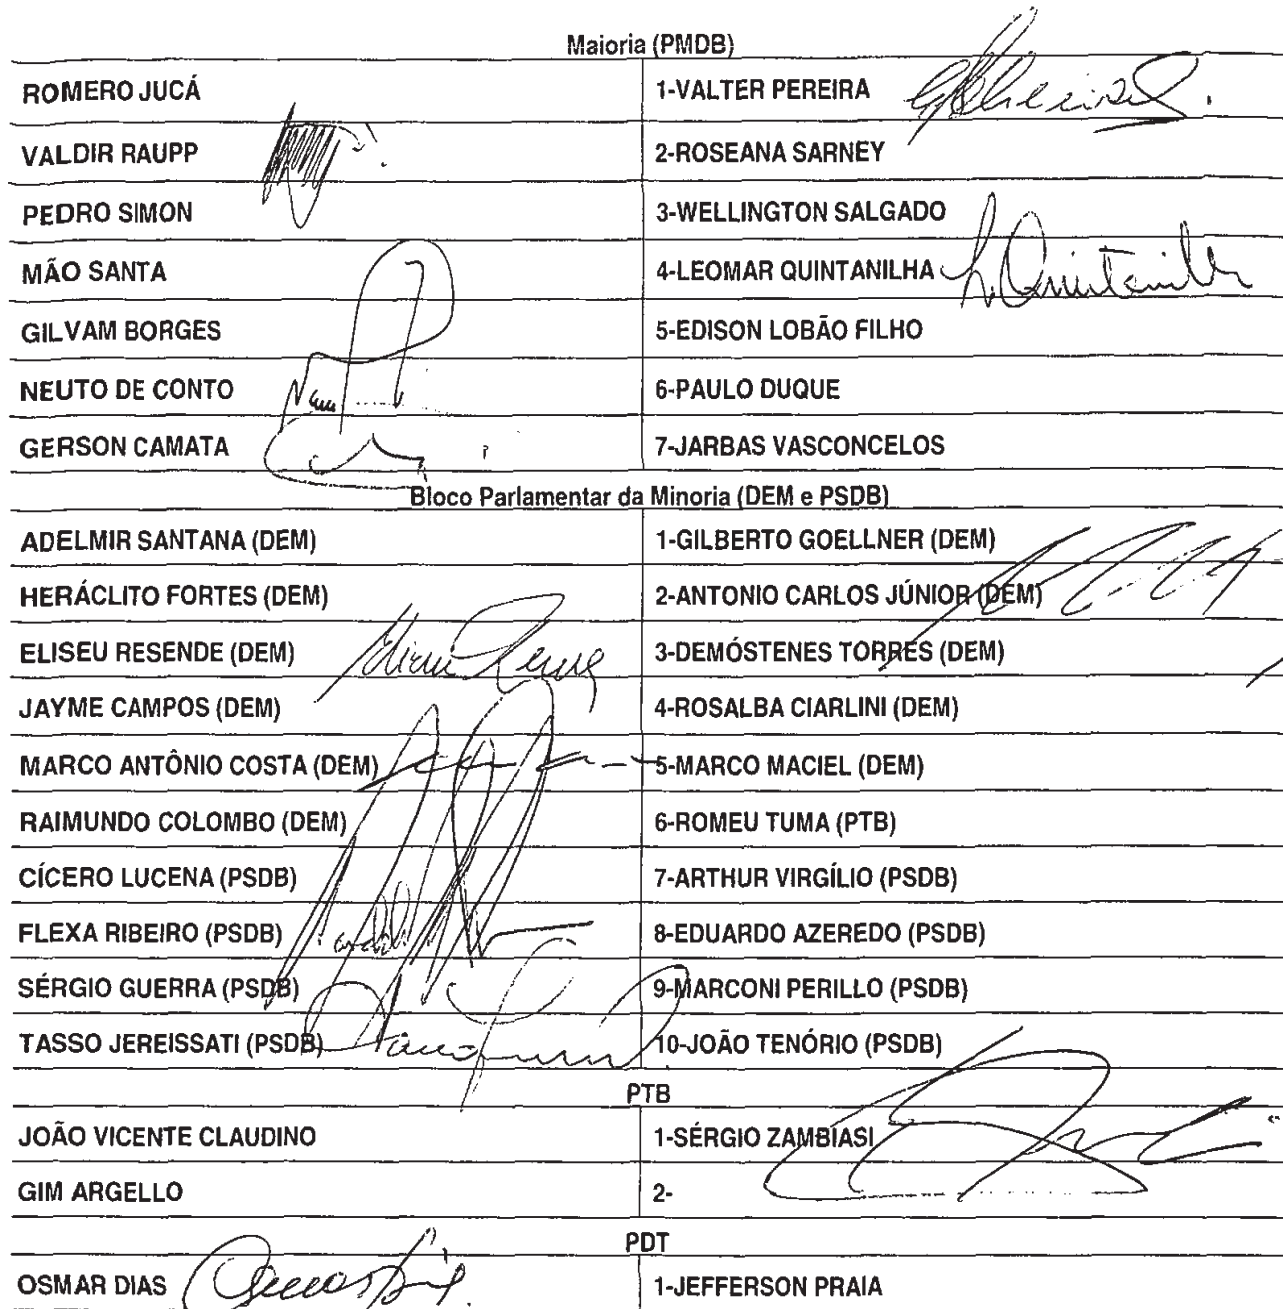 Maioria (PMDB)
ROMERO JUCÁ 1-VALTER PEREIRA
VALDIR RAUPP 2-ROSEANA SARNEY
PEDRO SIMON 3-WELLINGTON SALGADO
MÃO SANTA 4-LEOMAR QUINTANILHA L. Quintanilha
GILVAM BORGES 5-EDISON LOBÃO FILHO
NEUTO DE CONTO 6-PAULO DUQUE
GERSON CAMATA 7-JARBAS VASCONCELOS
Bloco Parlamentar da Minoria (DEM e PSDB)
ADELMIR SANTANA (DEM) 1-GILBERTO GOELLNER (DEM)
HERÁCLITO FORTES (DEM) 2-ANTONIO CARLOS JÚNIOR (DEM)
ELISEU RESENDE (DEM) 3-DEMÓSTENES TORRES (DEM)
JAYME CAMPOS (DEM) 4-ROSALBA CIARLINI (DEM)
MARCO ANTÔNIO COSTA (DEM) 5-MARCO MACIEL (DEM)
RAIMUNDO COLOMBO (DEM) 6-ROMEU TUMA (PTB)
CÍCERO LUCENA (PSDB) 7-ARTHUR VIRGÍLIO (PSDB)
FLEXA RIBEIRO (PSDB) 8-EDUARDO AZEREDO (PSDB)
SÉRGIO GUERRA (PSDB) 9-MARCONI PERILLO (PSDB)
TASSO JEREISSATI (PSDB) 10-JOÃO TENÓRIO (PSDB)
PTB
JOÃO VICENTE CLAUDINO 1-SÉRGIO ZAMBIASI
GIM ARGELLO 2-
PDT
OSMAR DIAS 1-JEFFERSON PRAIA